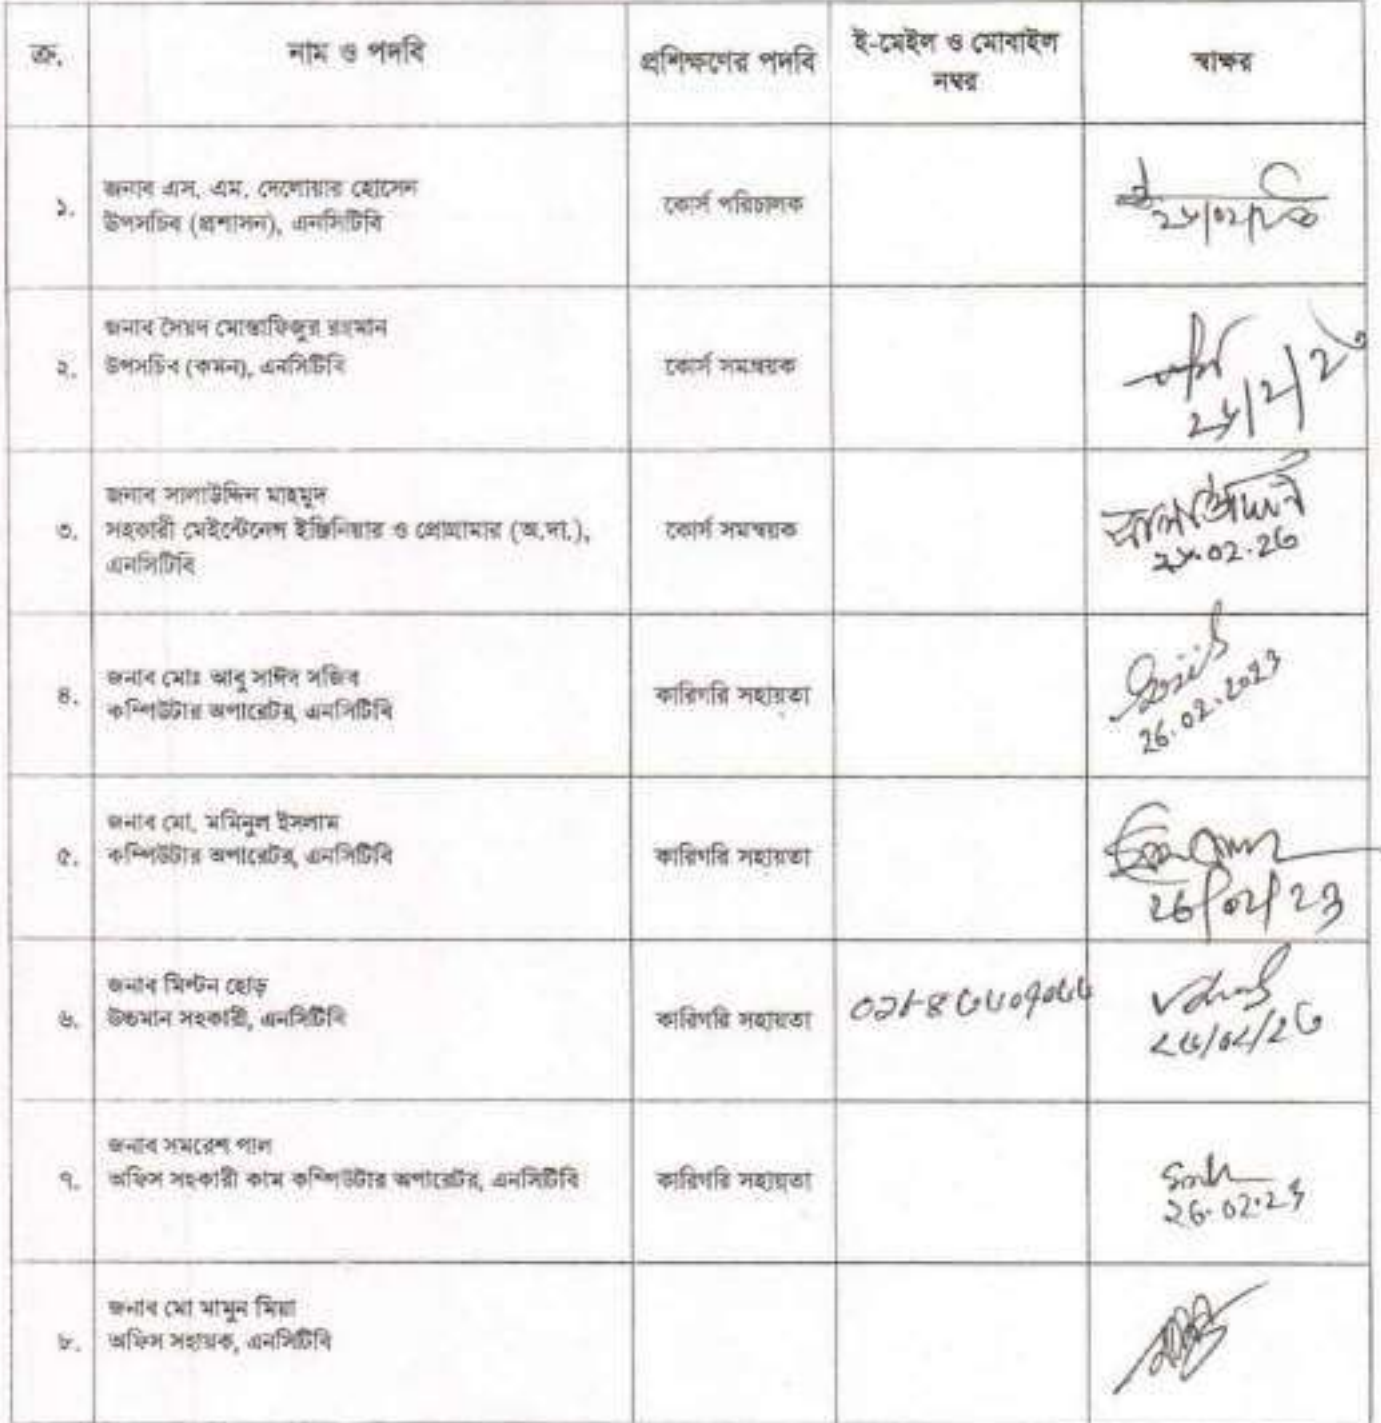 ক্র.
নাম ও পদবি
প্রশিক্ষণের পদবি
ই-মেইল ও মোবাইল
নম্বর
স্বাক্ষর
১.
জনাব এস. এম. দেলোয়ার হোসেন
উপসচিব (প্রশাসন), এনসিটিবি
কোর্স পরিচালক
২.
জনাব সৈয়দ মোস্তাফিজুর রহমান
উপসচিব (কমন), এনসিটিবি
কোর্স সমন্বয়ক
৩.
জনাব সালাউদ্দিন মাহমুদ
সহকারী মেইন্টেনেন্স ইঞ্জিনিয়ার ও প্রোগ্রামার (অ.দা.),
এনসিটিবি
কোর্স সমন্বয়ক
৪.
জনাব মোঃ আবু সাঈদ সজিব
কম্পিউটার অপারেটর, এনসিটিবি
কারিগরি সহায়তা
26.02.2023
৫.
জনাব মো. মমিনুল ইসলাম
কম্পিউটার অপারেটর, এনসিটিবি
কারিগরি সহায়তা
26/02/23
৬.
জনাব মিল্টন হোড়
উচ্চমান সহকারী, এনসিটিবি
কারিগরি সহায়তা
৭.
জনাব সমরেশ পাল
অফিস সহকারী কাম কম্পিউটার অপারেটর, এনসিটিবি
কারিগরি সহায়তা
26.02.23
৮.
জনাব মো মামুন মিয়া
অফিস সহায়ক, এনসিটিবি